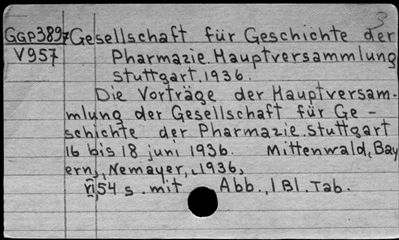 3
GGP3897 Gesellschaft für Geschichte der
V957 Pharmazie. Hauptversammlung
Stuttgart, 1936.
Die Vorträge der Hauptversam-
mlung der Gesellschaft für Ge-
schichte der Pharmazie. Stuttgart
16 bis 18 juni 1936. Mittenwald, Bay
ern, Nemayer, 1936,
VI 54 s. mit Abb., 1 Bl. Tab.